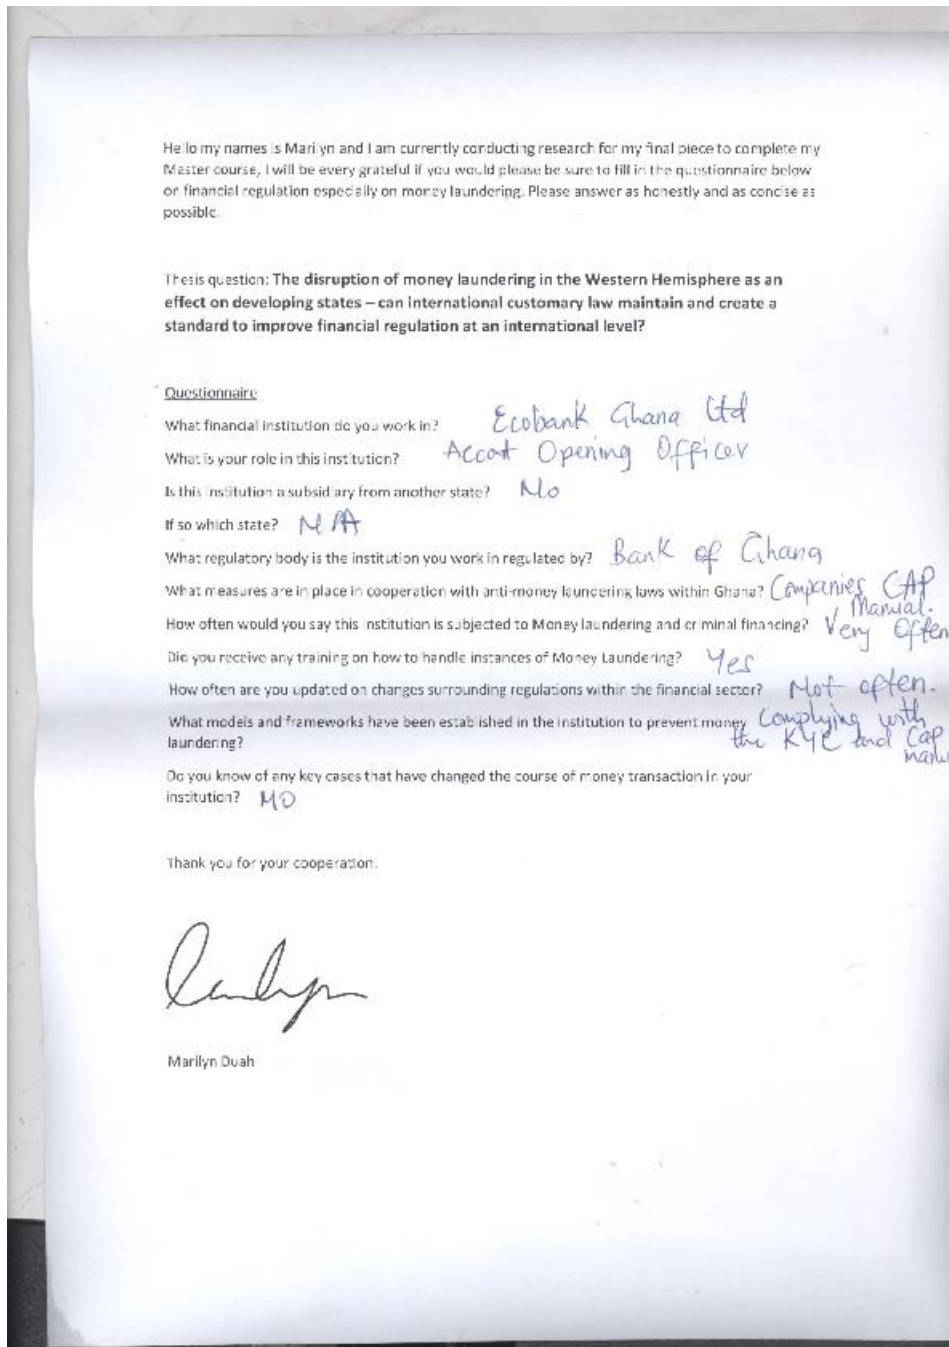 Hello my names is Marilyn and I am currently conducting research for my final piece to complete my
Master course, I will be every grateful if you would please be sure to fill in the questionnaire below
on financial regulation especially on money laundering. Please answer as honestly and as concise as
possible.
Thesis question: The disruption of money laundering in the Western Hemisphere as an
effect on developing states – can international customary law maintain and create a
standard to improve financial regulation at an international level?
Questionnaire
What financial institution do you work in? Ecobank Ghana Ltd
What is your role in this institution? Accont Opening Officer
Is this institution a subsidiary from another state? No
If so which state? N/A
What regulatory body is the institution you work in regulated by? Bank of Ghana
What measures are in place in cooperation with anti-money laundering laws within Ghana? Companies CAP
Manual.
How often would you say this institution is subjected to Money laundering and criminal financing? Very Often
Did you receive any training on how to handle instances of Money Laundering? Yes
How often are you updated on changes surrounding regulations within the financial sector? Not often.
What models and frameworks have been established in the institution to prevent money Complying with
laundering? the KYC and Cap
Do you know of any key cases that have changed the course of money transaction in your
institution? NO
Thank you for your cooperation.
Marilyn Duah